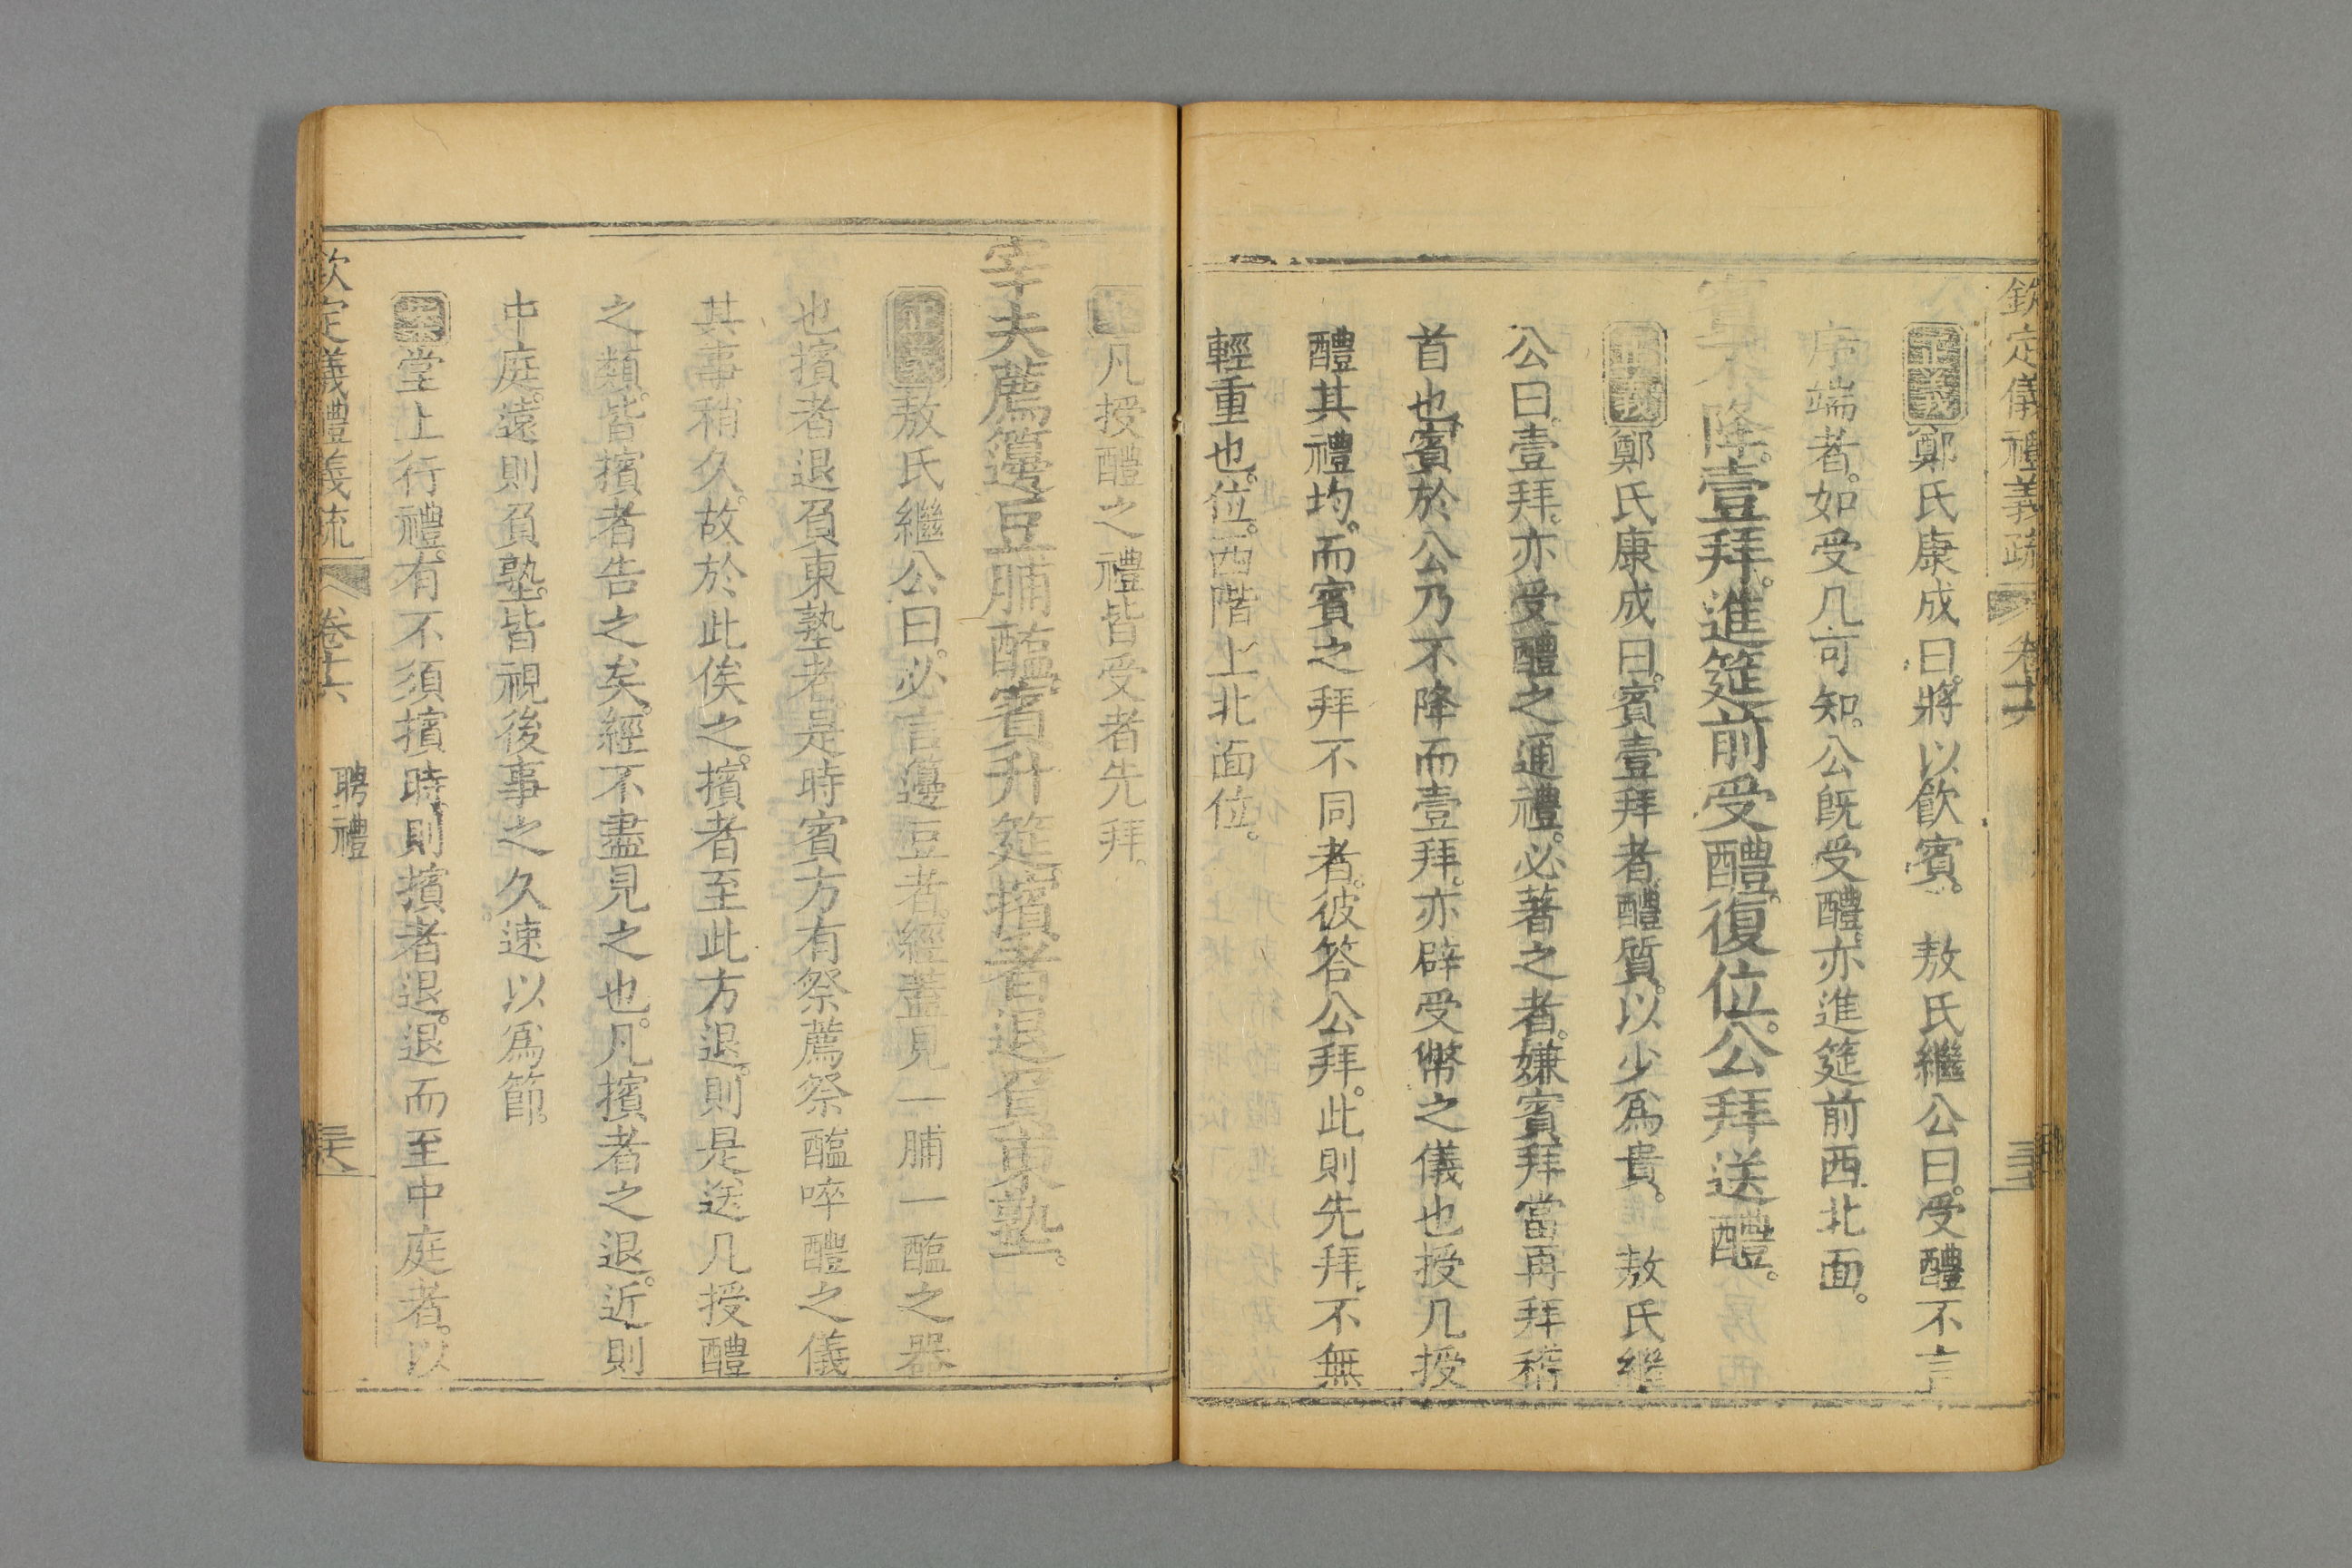 欽定儀禮義疏 卷十六
正義鄭氏康成曰。將以飮賓。 敖氏繼公曰。受醴不言
序端者。如受几可知。公旣受醴。亦進筵前西北面。
賓不降。壹拜。進筵前受醴。復位。公拜送醴。
正義鄭氏康成曰。賓壹拜者。醴質。以少爲貴。 敖氏繼
公曰。壹拜。亦受醴之通禮。必著之者。嫌賓拜當再拜稽
首也。賓於公乃不降而壹拜。亦辟受幣之儀也。授几授
醴其禮均。而賓之拜不同者。彼答公拜。此則先拜。不無
輕重也。位。西階上北面位。
凡授醴之禮皆受者先拜。
宰夫薦籩豆脯醢。賓升筵。擯者退負東塾。
正義敖氏繼公曰。必言籩豆者。經蓋見一脯一醢之器
也。擯者退負東塾者。是時賓方有祭薦祭醢啐醴之儀
其事稍久。故於此俟之。擯者至此方退。則是送几授醴
之類。皆擯者告之矣。經不盡見之也。凡擯者之退。近則
中庭。遠則負塾。皆視後事之久速以爲節。
案堂上行禮。有不須擯時。則擯者退。退而至中庭者。以
欽定儀禮義疏 卷十六 聘禮